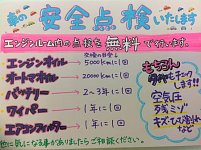 車の安全点検いたします
エンジンルーム内の点検を無料で行います。
交換の目安
エンジンオイル → 5000kmに1回
オートマオイル → 20000kmに1回
バッテリー → 2〜3年に1回
ワイパー → 1年に1回
エアコンフィルター → 1年に1回
もちろん
タイヤもチェックします!!
空気圧
残ミゾ
キズ・ヒビ割れなど
他に気になる事がありましたらご相談ください。